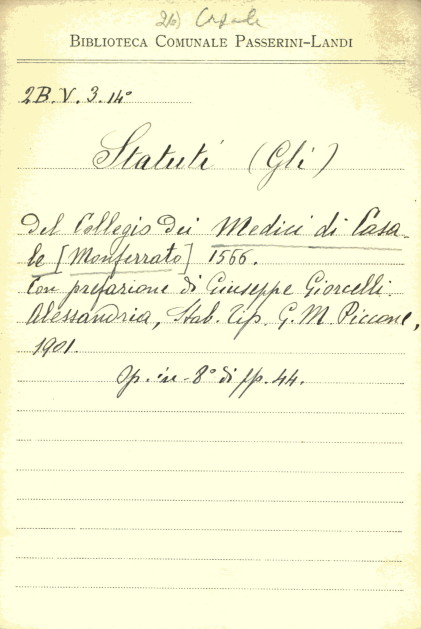 26) Casale
BIBLIOTECA COMUNALE PASSERINI-LANDI
2B. V. 3. 14°
Statuti (Gli)
del Collegio dei Medici di Casa-
le [Monferrato] 1566.
Con prefazione di Giuseppe Giorcelli.
Alessandria, Stab. Tip. G. M. Piccone,
1901.
Op. in-8° di pp. 44.